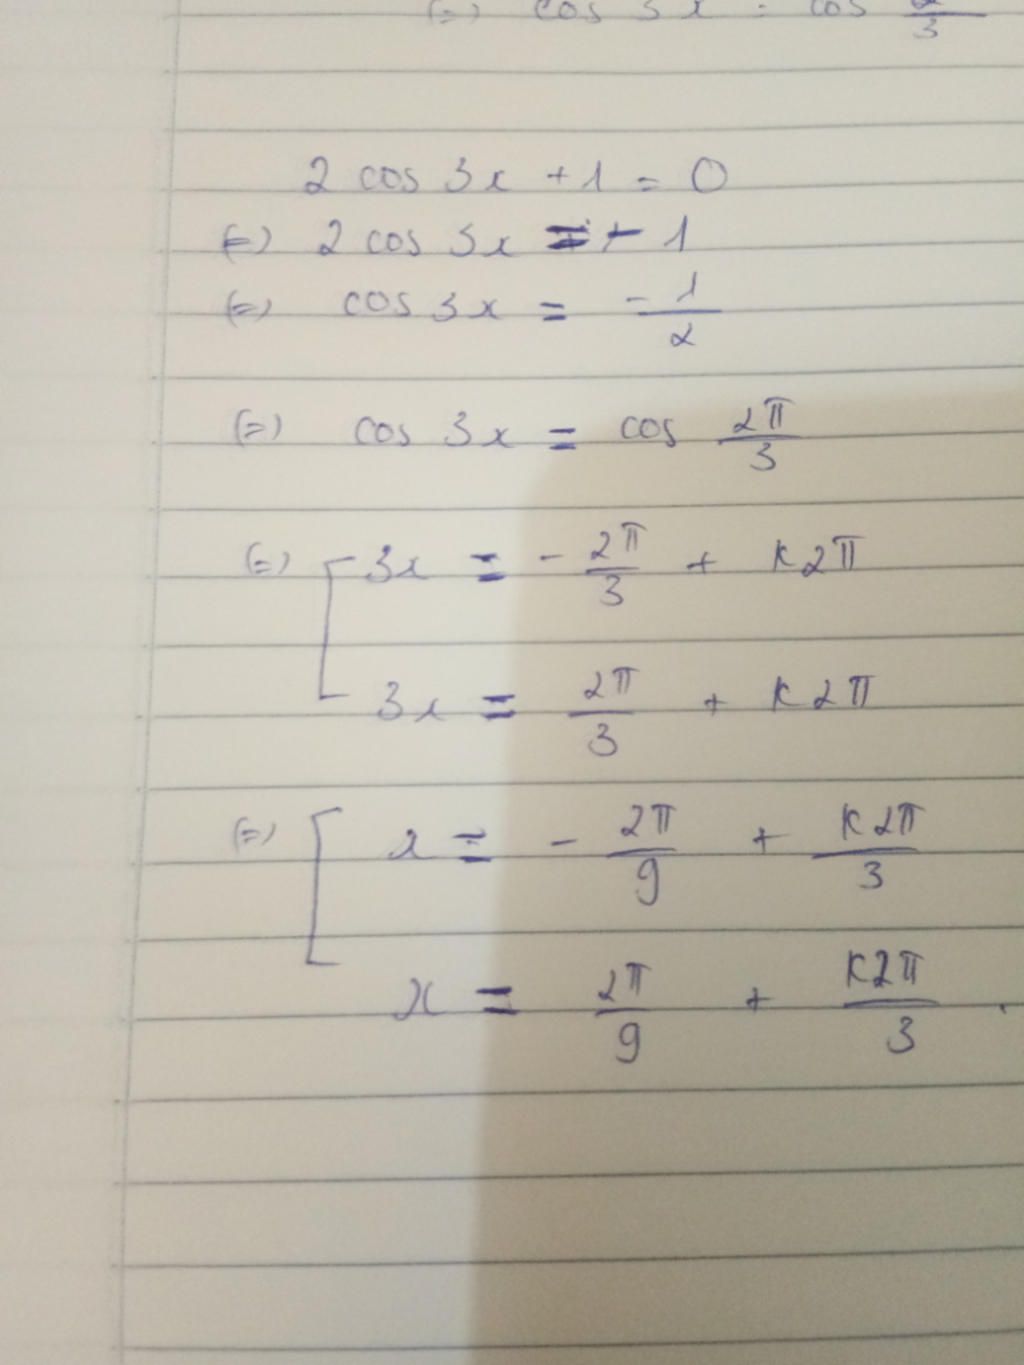 (=) cos 3x = cos 2/3
2 cos 3x + 1 = 0
(=) 2 cos 3x = - 1
(=) cos 3x = - 1/2
(=) cos 3x = cos 2π/3
(=) [ 3x = - 2π/3 + k2π
3x = 2π/3 + k2π
(=) [ x = - 2π/9 + k2π/3
x = 2π/9 + k2π/3 .